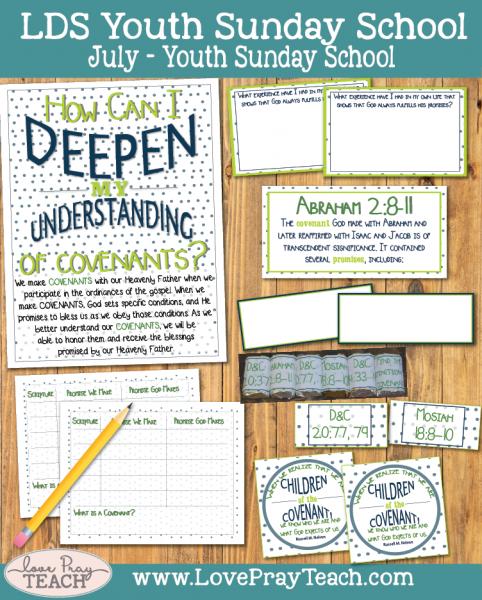 LDS Youth Sunday School
July - Youth Sunday School
How Can I
Deepen
my
Understanding
of Covenants?
We make COVENANTS with our Heavenly Father when we
participate in the ordinances of the gospel. When we
make COVENANTS, God sets specific conditions, and He
promises to bless us as we obey those conditions. As we
better understand our COVENANTS, we will be
able to honor them and receive the blessings
promised by our Heavenly Father.
What experience have I had in my
shows that God always fulfills
What experience have I had in my own life that
shows that God always fulfills his promises?
Abraham 2:8-11
The covenant God made with Abraham and
later reaffirmed with Isaac and Jacob is of
transcendent significance. It contained
several promises, including:
D&C
20:77,
D&C
77,
D&C
20:77, 79
Mosiah
18:8-10
Scripture Promise We Make Promise God Makes
What is
Scripture Promise We Make Promise God Makes
What is a Covenant?
When we realize that we are
CHILDREN
of the
COVENANT,
we know who we are and
what God expects of us.
Russell M. Nelson
When we realize that we are
CHILDREN
of the
COVENANT,
we know who we are and
what God expects of us.
Russell M. Nelson
Love Pray
TEACH
www.LovePrayTeach.com